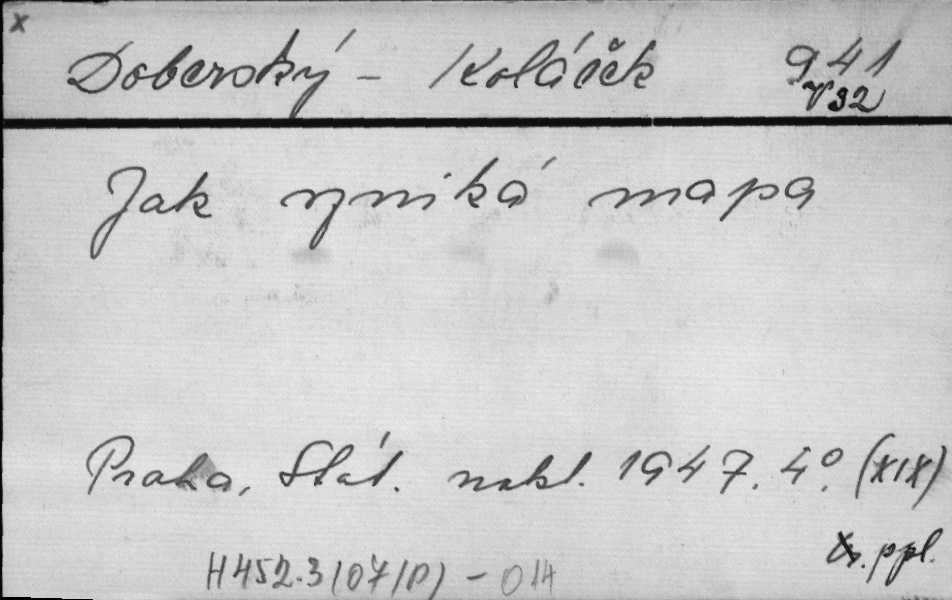 x
Doberský - Koláček 941
V32
Jak vzniká mapa
Praha, Stát. nakl. 1947. 4°. (XIX)
ppl.
H452.3(07/P) - 014